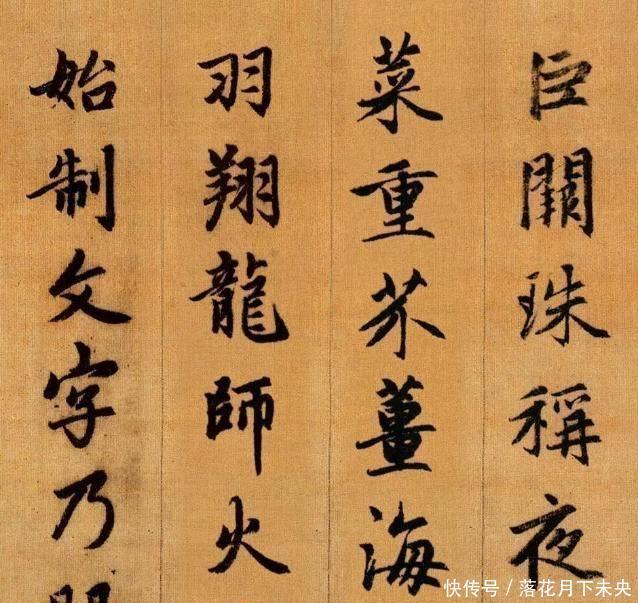 巨闕珠稱夜
菜重芥薑海
羽翔龍師火
始制文字乃
快传号／落花月下未央